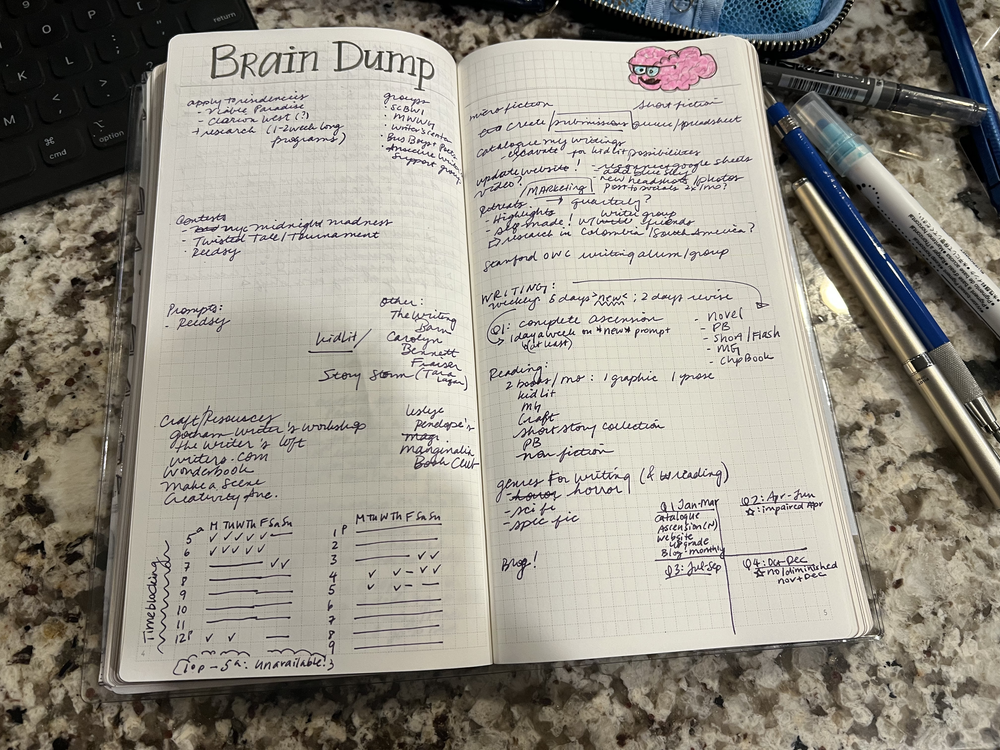 Brain Dump
apply to residencies
- Viable Paradise
- Clarion West (?)
+ research (1-2 week long
programs)
groups
· SCBWI
· MWW
· writer's center
· Bus Boys + Poets
· Insecure Writer's
Support group
Contests
- nyc midnight madness
- Twisted Tale / Tournament
- Reedsy
Prompts:
- Reedsy
other:
The Writing
Barn
kidlit/
Carolyn
Bennett
Fraiser
Story Storm (Tara
Lazar)
Craft/Resources
gotham writer's workshop
the writer's loft
writers.com
wonderbook
make a scene
Creativity, Inc.
Leslye
Penelope's
Magi.
Marginalia
Book Club
Timeblocking
M Tu W Th F Sa Su
a
5
6
7
8
9
10
11
12P
M Tu W Th F Sa Su
P
1
2
3
4
5
6
7
8
9
(10p - 5a: unavailable!)
4
micro fiction
short fiction
create/submissions queue/spreadsheet
catalogue my writings
- excavate for kidlit possibilities
update website!
- reconnect google sheets
- add blue sky
video?
- new headshots/photos
MARKETING
post to socials 2x/mo?
retreats
→ quarterly?
- Highlights
writer group
- self made! w/ friends
research in Colombia/South America?
Stanford OWC writing alum/group
WRITING:
weekly: 5 days >new<; 2 days revise
Q1: complete Ascension
→ 1 day a week on *new* prompt
(at least)
- novel
- PB
- Short/Flash
- MG
- ChpBook
Reading:
2 books/mo: 1 graphic 1 prose
kidlit
MG
Craft
short story collection
PB
non fiction
genres for writing (& reading)
- horror horror!
- sci fi
- spec fic
Blog!
Q1 Jan-Mar
Catalogue
Ascension (N)
Website
upgrade
Blog: monthly
Q2: Apr-Jun
☆: impaired Apr
Q3: Jul-Sep
Q4: Oct-Dec
☆ no/diminished
nov + Dec
5
O
P
K
L
M
control
option
cmd
⌘